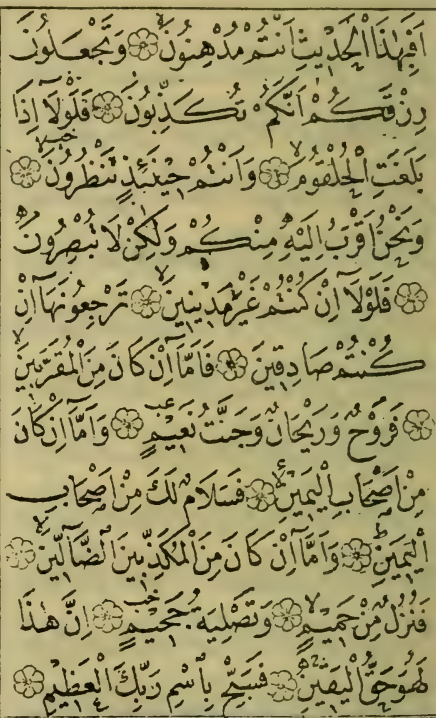 اَفَبِهٰذَا الْحَدِيثِ اَنْتُمْ مُدْهِنُونَ ۝ وَتَجْعَلُونَ
رِزْقَكُمْ اَنَّكُمْ تُكَذِّبُونَ ۝ فَلَوْلَٓا اِذَا
بَلَغَتِ الْحُلْقُومَ ۝ وَاَنْتُمْ حِينَئِذٍ تَنْظُرُونَ ۝
وَنَحْنُ اَقْرَبُ اِلَيْهِ مِنْكُمْ وَلٰكِنْ لَا تُبْصِرُونَ
۝ فَلَوْلَٓا اِنْ كُنْتُمْ غَيْرَ مَدِينِينَ ۝ تَرْجِعُونَهَٓا اِنْ
كُنْتُمْ صَادِقِينَ ۝ فَاَمَّٓا اِنْ كَانَ مِنَ الْمُقَرَّبِينَ
۝ فَرَوْحٌ وَرَيْحَانٌ وَجَنَّتُ نَعِيمٍ ۝ وَاَمَّٓا اِنْ كَانَ
مِنْ اَصْحَابِ الْيَمِينِ ۝ فَسَلَامٌ لَكَ مِنْ اَصْحَابِ
الْيَمِينِ ۝ وَاَمَّٓا اِنْ كَانَ مِنَ الْمُكَذِّبِينَ الضَّٓالِّينَ ۝
فَنُزُلٌ مِنْ حَمِيمٍ ۝ وَتَصْلِيَةُ جَحِيمٍ ۝ اِنَّ هٰذَا
لَهُوَ حَقُّ الْيَقِينِ ۝ فَسَبِّحْ بِاسْمِ رَبِّكَ الْعَظِيمِ ۝